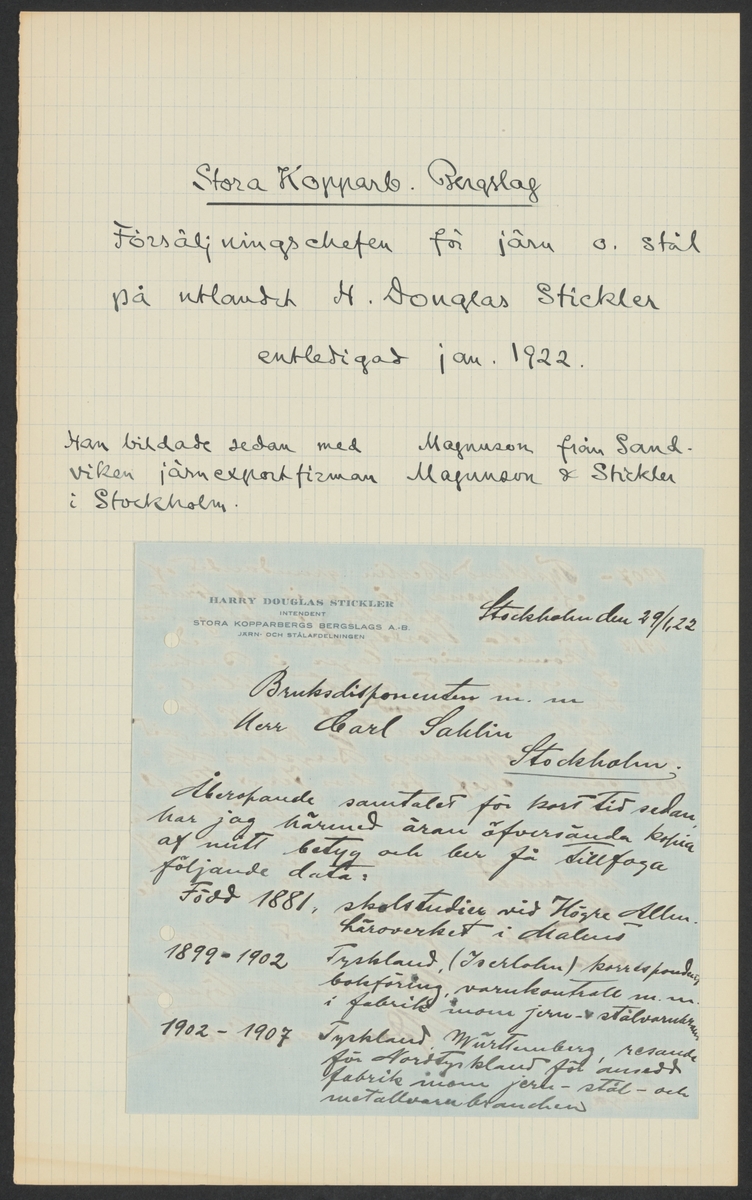 Stora Kopparb. Bergslag
Försäljningschefen för järn o. stål
på utlandet H. Douglas Stickler
entledigad jan. 1922.
Han bildade sedan med Magnuson från Sand-
viken järnexportfirman Magnuson & Stickler
i Stockholm.
HARRY DOUGLAS STICKLER
INTENDENT
STORA KOPPARBERGS BERGSLAGS A.-B.
JÄRN- OCH STÅLAFDELNINGEN
Stockholm den 29/1,22
Bruksdisponenten m. m
Herr Carl Sahlin
Stockholm.
Åberopande samtalet för kort tid sedan,
har jag härmed äran öfversända kopia
af mitt betyg och ber få tillfoga
följande data:
Född 1881, skolstudier vid Högre Allm.
Läroverket i Malmö
1899-1902 Tyskland, (Iserlohn)
bokföring, varukontroll m. m.
i fabrik inom jern- &
1902-1907 Tyskland, Württemberg, resande
för Nordtyskland för ansedd
fabrik inom jern- stål- och
metallvarubranchen